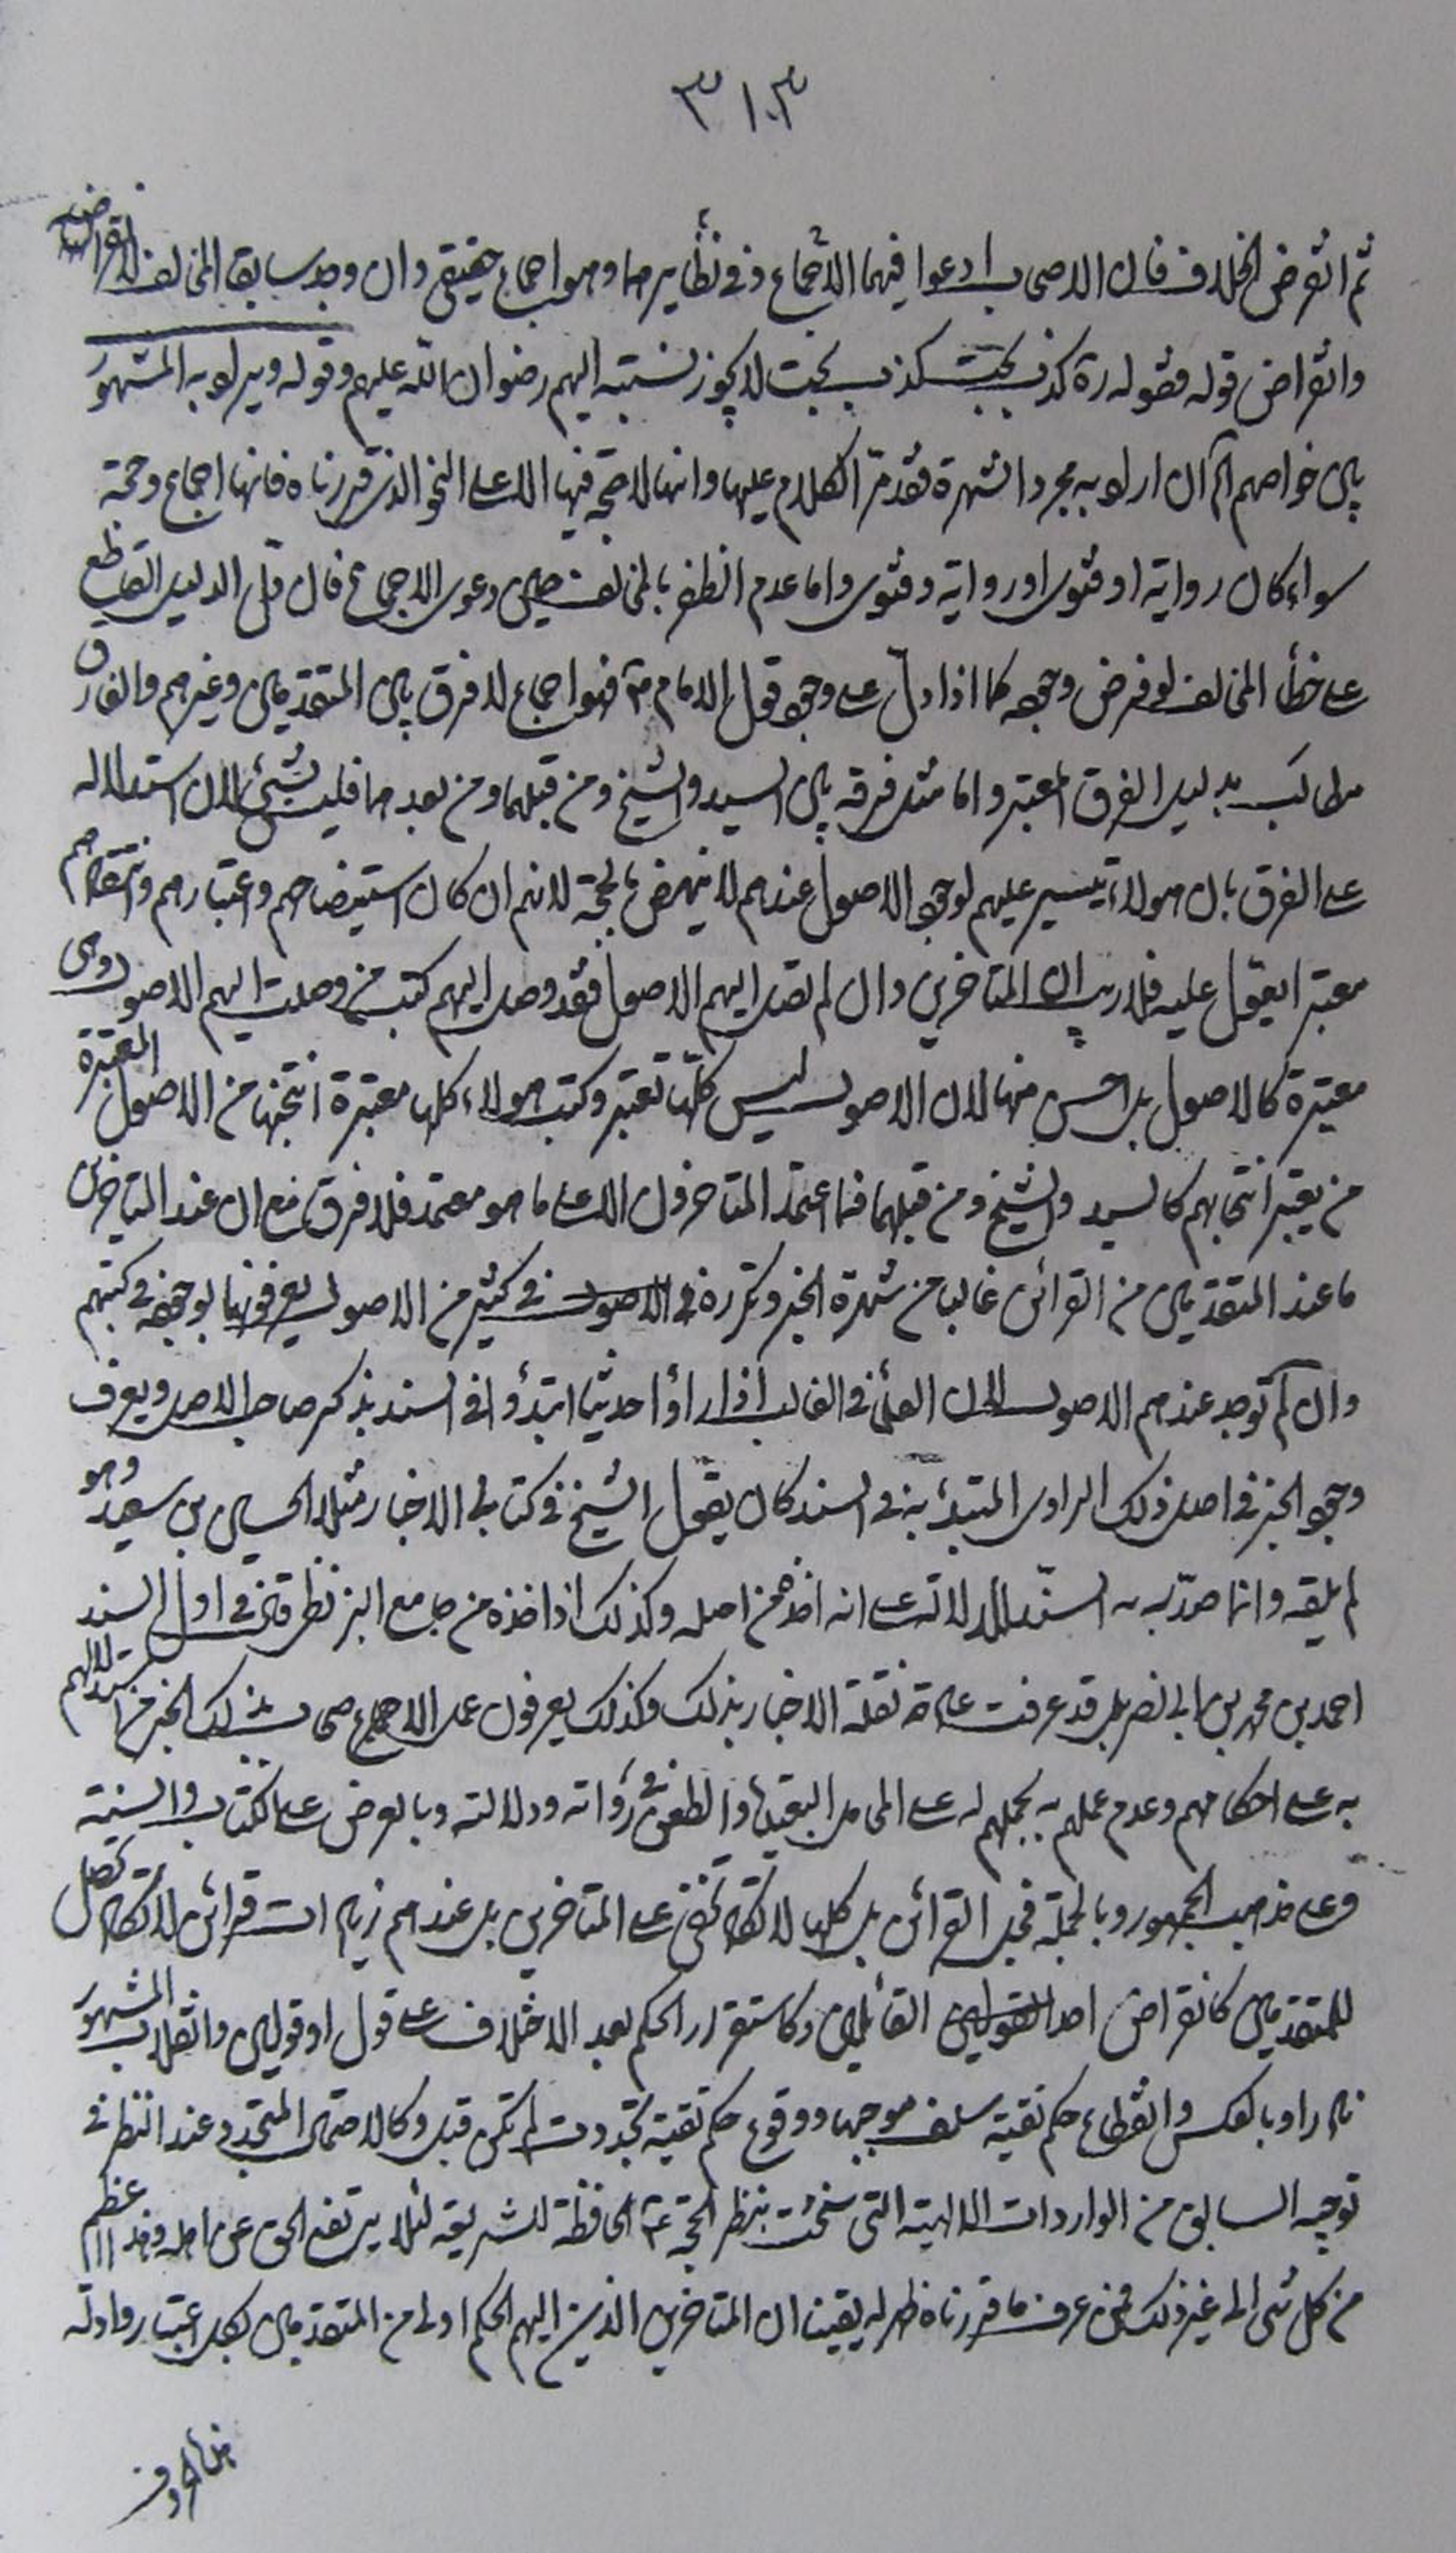 ٣١٣
ثم انقرض الخلاف فان الاصحاب ادعوا فيهما الاجماع وفي نظايرهما وهو اجماع حقيقي وان وجد سابقا المخالف لانقراضه
وانقراض قوله فقوله ره كذب بحت كذب بحت لا يجوز نسبته اليهم رضوان الله عليهم وقوله ويراد به المشهور
بين خواصهم آه ان اراد به مجرد الشهرة فقد مرّ الكلام عليها وانها لا حجة فيها الا على النحو الذي قررناه فانها اجماع وحجة
سواء كان رواية او فتوى او رواية وفتوى واما عدم الظفر بالمخالف حين دعوى الاجماع فان دلّ الدليل القاطع
على خطأ المخالف لو فرض وجوده كما اذا دلّ على وجود قول الامام ع فهو اجماع لا فرق بين المتقدمين وغيرهم والفارق
مطالب بدليل الفرق المعتبر واما مثل فرقه بين السيد والشيخ ومن قبلهما ومن بعدهما فليس بشيء لان استدلاله
على الفرق بان هولاء تيسير عليهم لوجود الاصول عندهم لا ينهض بالحجة لانهم ان كان استيضاحهم واعتبارهم وانتقادهم
معتبرا يعوّل عليه فلا ريب ان المتاخرين وان لم تصل اليهم الاصول فقد وصل اليهم كتب من وصلت اليهم الاصول وهى
معتبرة كالاصول بل احسن منها لان الاصول ليس كلّها تعتبر وكتب هولاء كلها معتبرة انتخبها من الاصول المعتبرة
من يعتبر انتخابهم كالسيد والشيخ ومن قبلهما فما اعتمد المتاخرون الا على ما هو معتمد فلا فرق مع ان عند المتاخرين
ما عند المتقدمين من القرائن غالبا من شهرة الخبر وتكرره في الاصول في كثير من الاصول يعرفونها بوجوده في كتبهم
وان لم توجد عندهم الاصول لان العلماء في الغالب اذا رأوا حديثا ابتدؤا في السند بذكر صاحب الاصل ويعرف
وجود الخبر في اصل ذلك الراوى المبتدئ به في السند كان يقول الشيخ في كتابي الاخبار مثلا الحسين بن سعيد وهو
لم يلقه وانما صدّر به السند للدلالة على انه اخذه من اصله وكذلك اذا اخذه من جامع البزنطي قال في اول السند
احمد بن محمد بن ابى نصر بل قد عرفت عادة نقلة الاخبار بذلك وكذلك يعرفون عمل الاصحاب بذلك الخبر من استدلالهم
به على احكامهم وعدم عملهم به بحملهم له على المحامل البعيدة والطعن في رواته ودلالته وبالعرض على الكتاب والسنة
وعلى مذهب الجمهور وبالجملة فجل القرائن بل كلها لا تكاد تخفى على المتاخرين بل عندهم زيادات قرائن لا تكاد تحصل
للمتقدمين كانقراض احد القولين القائلين وكاستقرار الحكم بعد الاختلاف على قول او قولين وانقلاب المشهور
نادرا وبالعكس وانقطاع حكم تقية سلف موجبها ووقوع حكم تقية تجددت لم تكن قبل وكالاحتمال المتجدد عند النظر في
توجيه السابق من الواردات الالهية التي سنحت بنظر الحجة ع المحافظة للشريعة لئلا يرتفع الحق عن اهله وهذا اعظم
من كل شئ الى غير ذلك فمن عرف ما قررناه ظهر له يقينا ان المتاخرين الذين اليهم الحكم اولى من المتقدمين بكل اعتبار وادلّه